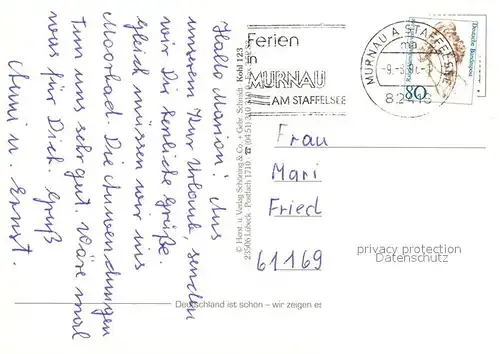 Hallo Marion! Aus
unserem Kur Urlaub, senden
wir Dir herzliche Grüße.
Gleich müssen wir ins
Moorbad. Die Anwendungen
Tun uns sehr gut. Wäre mal
was für Dich. Gruß
Anni u. Ernst.
© Horst. u. Verlag Schöning & Co. + Gebr. Schmidt · Kohl 123
23506 Lübeck · Postfach 1710
Ferien
in
MURNAU
AM STAFFELSEE
MURNAU A. STAFFELSEE
ma
82418
Deutsche Bundespost
80
Frau
Mari
Fried
61169
privacy protection
Datenschutz
Deutschland ist schön – wir zeigen es